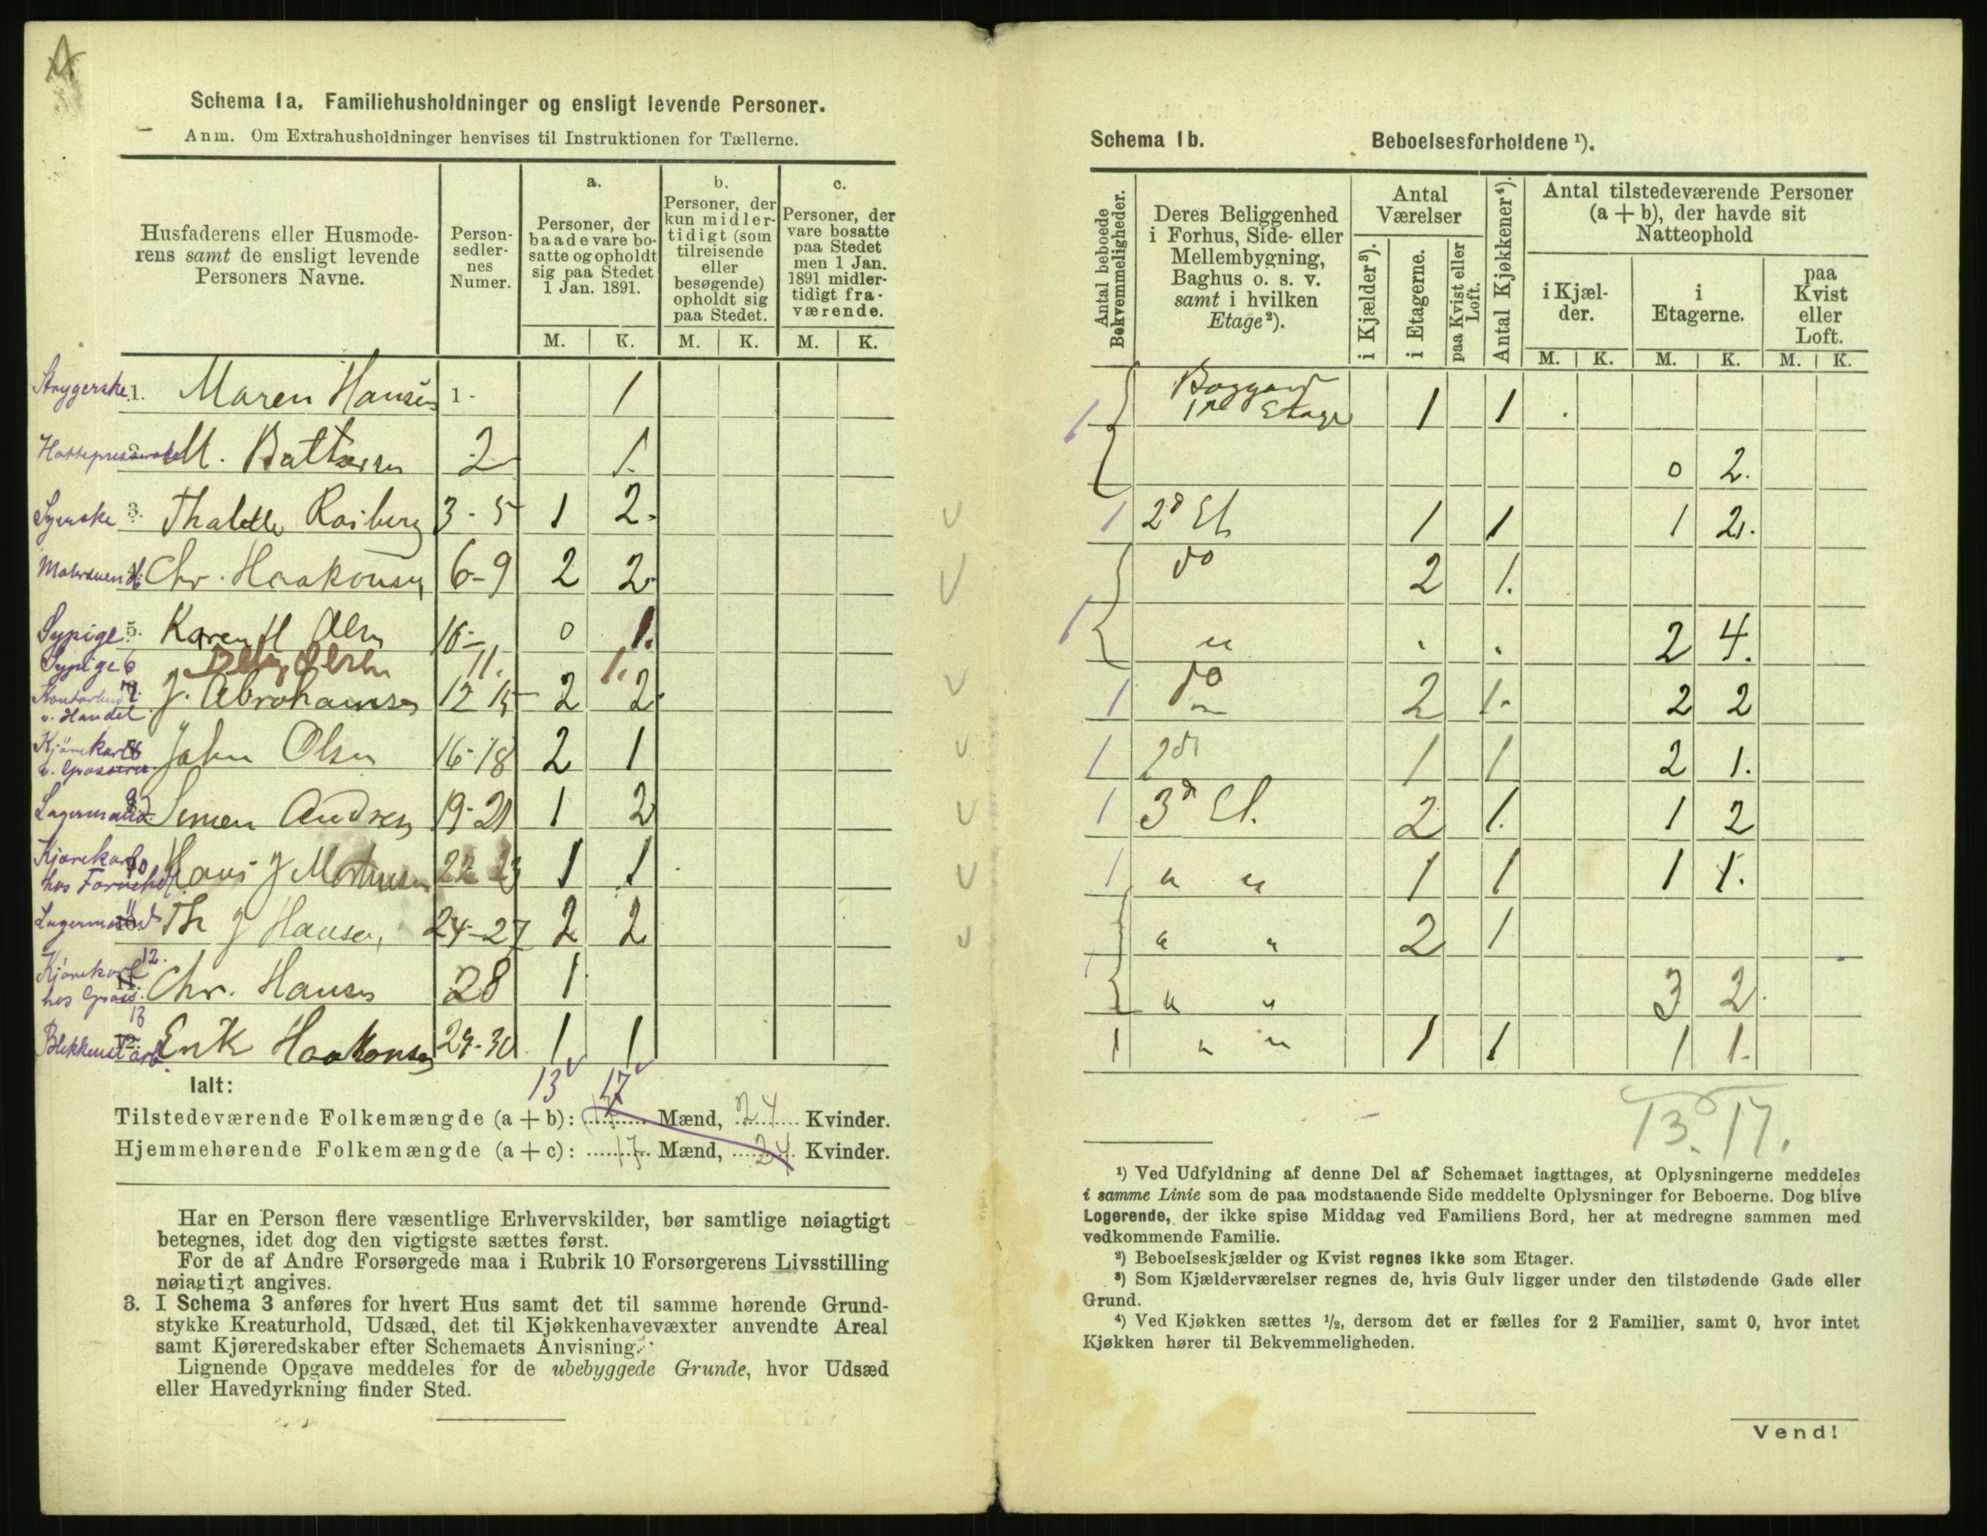 Schema 1a. Familiehusholdninger og ensligt levende Personer.
Anm. Om Extrahusholdninger henvises til Instruktionen for Tællerne.
Husfaderens eller Husmoderens samt de ensligt levende Personers Navne.
Personsedlernes Numer.
a.
Personer, der baade vare bosatte og opholdt sig paa Stedet 1 Jan. 1891.
b.
Personer, der kun midlertidigt (som tilreisende eller besøgende) opholdt sig paa Stedet.
c.
Personer, der vare bosatte paa Stedet men 1 Jan. 1891 midlertidigt fraværende.
M. K. M. K. M. K.
Strygerske 1. Maren Hansen 1. 1
M. 2 1.
Syerske 3. 3-5 1 2.
Chr. Haakonsen 6-9 2 2.
Sypige 5. Karen H Olsen 0 1.
Sypige 6 Olsen 11. 1.
v. Handel J. Abrahamsen 12 15 2 2.
Kjörekarl John Olsen 16-18 2 1
Lagermand Simen Andresen 19-21 1 2
Kjörekarl 10 Hans J Mortensen 22 23 1 1
Lagermand Th J Hansen, 24-27 2 2
12. Kjörekarl Chr. Hansen 28 1
13 Erik Haakonsen 29-30 1 1
Ialt: 13 17
Tilstedeværende Folkemængde (a + b): Mænd, 24 Kvinder.
Hjemmehørende Folkemængde (a + c): 17 Mænd, 24 Kvinder.
Har en Person flere væsentlige Erhvervskilder, bør samtlige nøiagtigt
betegnes, idet dog den vigtigste sættes først.
For de af Andre Forsørgede maa i Rubrik 10 Forsørgerens Livsstilling
nøiagtigt angives.
3. I Schema 3 anføres for hvert Hus samt det til samme hørende Grund-
stykke Kreaturhold, Udsæd, det til Kjøkkenhavevæxter anvendte Areal
samt Kjøreredskaber efter Schemaets Anvisning.
Lignende Opgave meddeles for de ubebyggede Grunde, hvor Udsæd
eller Havedyrkning finder Sted.
Schema 1b. Beboelsesforholdene ¹).
Antal beboede Bekvemmeligheder.
Deres Beliggenhed i Forhus, Side- eller Mellembygning, Baghus o. s. v. samt i hvilken Etage²).
Antal Værelser
i Kjælder³).
i Etagerne.
paa Kvist eller Loft.
Antal Kjøkkener⁴).
Antal tilstedeværende Personer (a + b), der havde sit Natteophold
i Kjælder.
i Etagerne.
paa Kvist eller Loft.
M. K. M. K. M. K.
1 Baggaard 1ste Etage 1 1
0 2.
1 2d Et 1 1 1 2.
1 do 2 1.
" . . 2 4.
1 do 2 1. 2 2
1 2d 1 1 2 1.
1 3d Et. 2 1. 1 2
1 " " 1 1 1 1.
1 " " 2 1
" " 3 2.
1 " " 1 1 1 1.
13. 17.
¹) Ved Udfyldning af denne Del af Schemaet iagttages, at Oplysningerne meddeles
i samme Linie som de paa modstaaende Side meddelte Oplysninger for Beboerne. Dog blive
Logerende, der ikke spise Middag ved Familiens Bord, her at medregne sammen med
vedkommende Familie.
²) Beboelseskjælder og Kvist regnes ikke som Etager.
³) Som Kjælderværelser regnes de, hvis Gulv ligger under den tilstødende Gade eller
Grund.
⁴) Ved Kjøkken sættes ½, dersom det er fælles for 2 Familier, samt 0, hvor intet
Kjøkken hører til Bekvemmeligheden.
Vend!